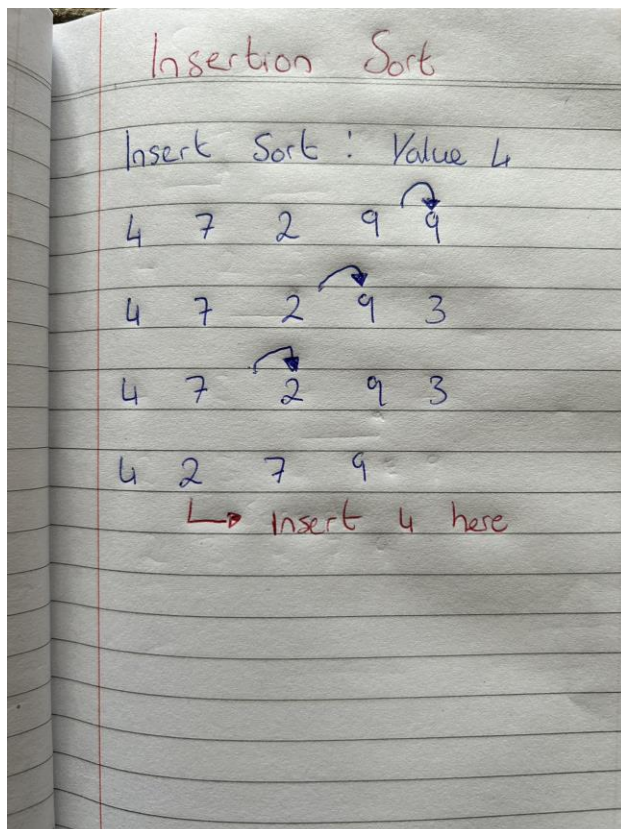 Insertion Sort
Insert Sort : Value 4
4 7 2 9 9
4 7 2 9 3
4 7 2 9 3
4 2 7 9
insert 4 here